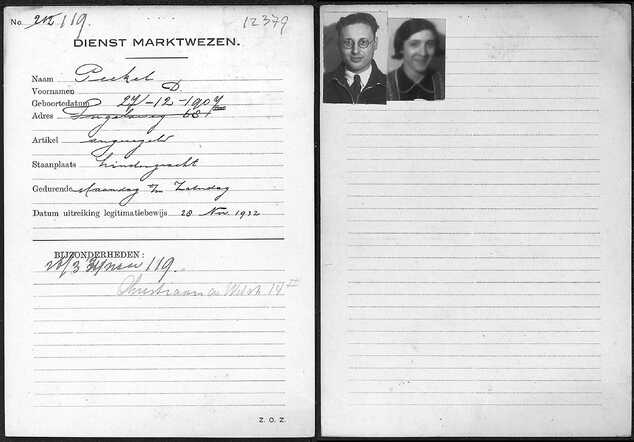 No. 212 119. 12379
DIENST MARKTWEZEN.
Naam Peekel
Voornamen D.
Geboortedatum 27-12-1907
Adres 631
Artikel ongeregeld
Staanplaats Lindengracht
Gedurende Maandag t/m Zaterdag
Datum uitreiking legitimatiebewijs 28 Nov 1932
BIJZONDERHEDEN:
119.
Christiaan de Wet 14 II
Z. O. Z.